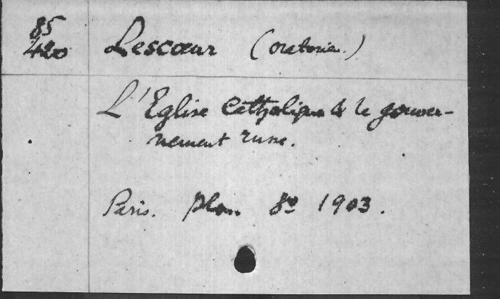 85
420
Lescœur (oratorien.)
L'Eglise Catholique & le gouver-
nement russe.
Paris. Plon. 8º 1903.